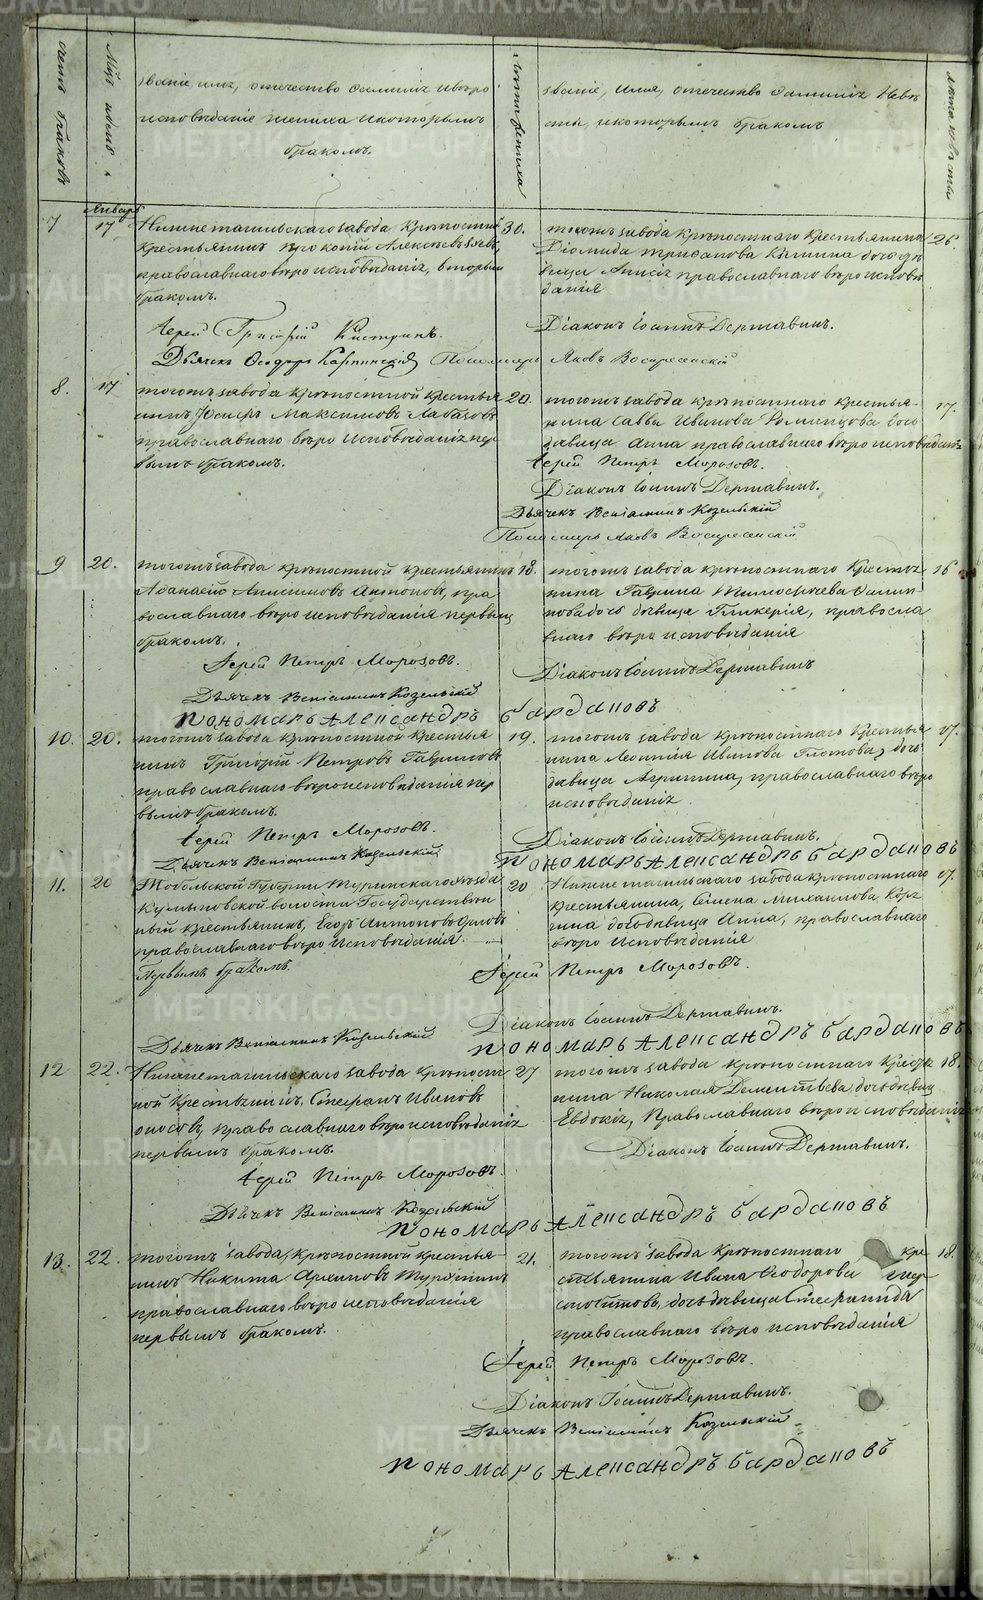 METRIKI.GASO-URAL.RU
счетъ браковъ
Мцъ и день
Званіе, имя, отечество фамилія и вѣро
исповѣданіе жениха и которымъ
бракомъ.
Лѣта жениха
Званіе, имя, отечество фамилія Невѣ
сты и которымъ бракомъ
Лѣта невѣсты
Январь
7
17
Нижнетагильскаго завода крѣпостный
крестьянинъ Прокопій Алексѣевъ
православнаго вѣроисповѣданія, вторымъ
бракомъ.
30.
тогожъ завода крѣпостнаго крестьянина
Діомида дочь дѣ
вица Анисія православнаго вѣроисповѣ
данія
26
Іерей Кистринъ.
Діаконъ Іоаннъ Державинъ.
Дьячекъ Ѳеодоръ Карпинскій Пономарь Яковъ Воскресенскій
8.
17
тогожъ завода крѣпостной крестья
нинъ, Іосифъ Максимовъ
православнаго вѣроисповѣданія пер
вымъ бракомъ.
20.
тогожъ завода крѣпостнаго крестья-
нина Саввы Иванова Румянцова доч
дѣвица Анна православнаго вѣроисповѣданія
17.
Іерей Петръ Морозовъ.
Діаконъ Іоаннъ Державинъ.
Дьячекъ Веніаминъ Козельскій
Пономарь Яковъ Воскресенскій
9
20.
тогожъ завода крѣпостной крестьянинъ
Аѳанасій Анисимовъ Антоновъ, пра
вославнаго вѣроисповѣданія первымъ
бракомъ.
18.
тогожъ завода крѣпостнаго крестья
нина Гаврила Тимоѳеева Филип
пова дочь дѣвица Гликерія, правосла
внаго вѣроисповѣданія
16
Іерей Петръ Морозовъ.
Діаконъ Іоаннъ Державинъ
Дьячекъ Веніаминъ Козельскій
Пономарь Александръ Бардановъ
10.
20.
тогожъ завода крѣпостной крестья
нинъ Григорій Петровъ Гавриловъ
православнаго вѣроисповѣданія пер
вымъ бракомъ.
19.
тогожъ завода крѣпостнаго крестья
нина Леонтія Иванова Глотова, доч
дѣвица Агрипина, православнаго вѣро
исповѣданія
17.
Іерей Петръ Морозовъ.
Діаконъ Іоаннъ Державинъ.
Дьячекъ Веніаминъ Козельскій
Пономарь Александръ Бардановъ
11.
20
Тобольской Губерніи Туринскаго уѣзда
волости Государствен
ный крестьянинъ, Егоръ Антоновъ Орловъ
православнаго вѣроисповѣданія.
Первымъ бракомъ.
20
Нижнетагильскаго завода крѣпостнаго
крестьянина, Семена Михаилова,
дочь дѣвица Анна, православнаго
вѣроисповѣданія
17.
Іерей Петръ Морозовъ.
Діаконъ Іоаннъ Державинъ.
Дьячекъ Веніаминъ Козельскій
Пономарь Александръ Бардановъ
12
22.
Нижнетагильскаго завода крѣпост
ной крестьянинъ, Стефанъ Ивановъ
православнаго вѣроисповѣданія
первымъ бракомъ.
27
тогожъ завода крѣпостнаго крестья
нина Николая Дементьева дочь дѣвица
Евдокія, Православнаго вѣроисповѣданія
18.
Діаконъ Іоаннъ Державинъ.
Іерей Петръ Морозовъ.
Дьячекъ Веніаминъ Козельскій
Пономарь Александръ Бардановъ
13.
22.
тогожъ завода, крѣпостной крестья-
нинъ Никита Архиповъ
православнаго вѣроисповѣданія
первымъ бракомъ.
21.
тогожъ завода крѣпостнаго кре
стьянина Ивана Ѳеодорова
дочь дѣвица Стефанида
православнаго вѣроисповѣданія
18.
Іерей Петръ Морозовъ.
Діаконъ Іоаннъ Державинъ.
Дьячекъ Веніаминъ Козельскій
Пономарь Александръ Бардановъ
METRIKI.GASO-URAL.RU